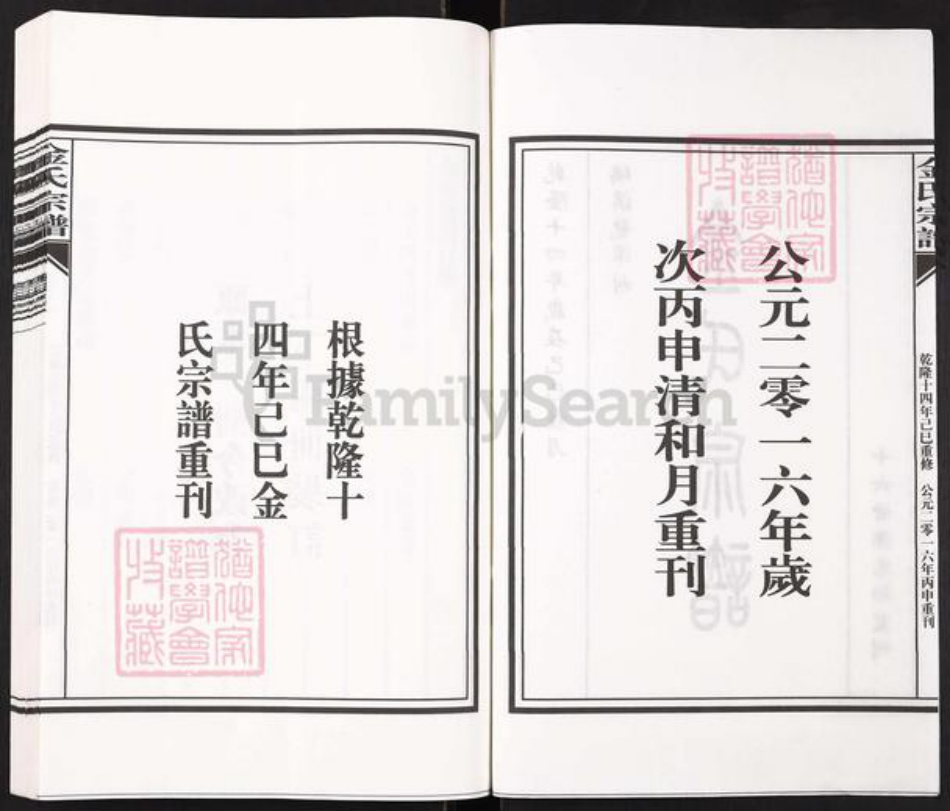 公元二零一六年歲
次丙申清和月重刊
金氏宗譜
乾隆十四年己巳重修 公元二零一六年丙申重刊
根據乾隆十
四年己巳金
氏宗譜重刊
金氏宗譜
猶他家
譜學會
收藏
猶他家
譜學會
收藏
FamilySearch